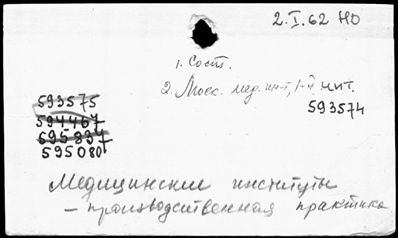 2.I.62 НО
1. Сост.
2. Моск. мед. ин-т, 1-й чит.
593574
593575
594467
595837
595080
Медицинские институты
— производственная практика